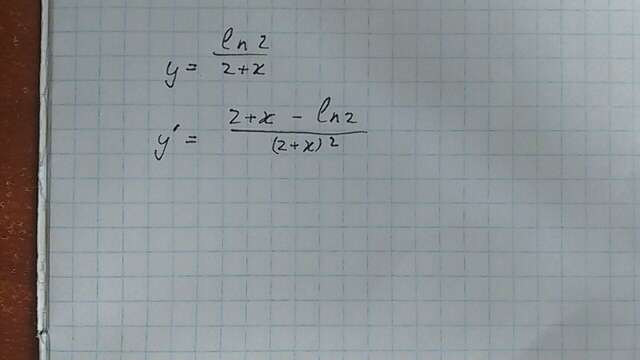 y = ln 2 / 2+x
y' = 2+x - ln2 / (2+x)²